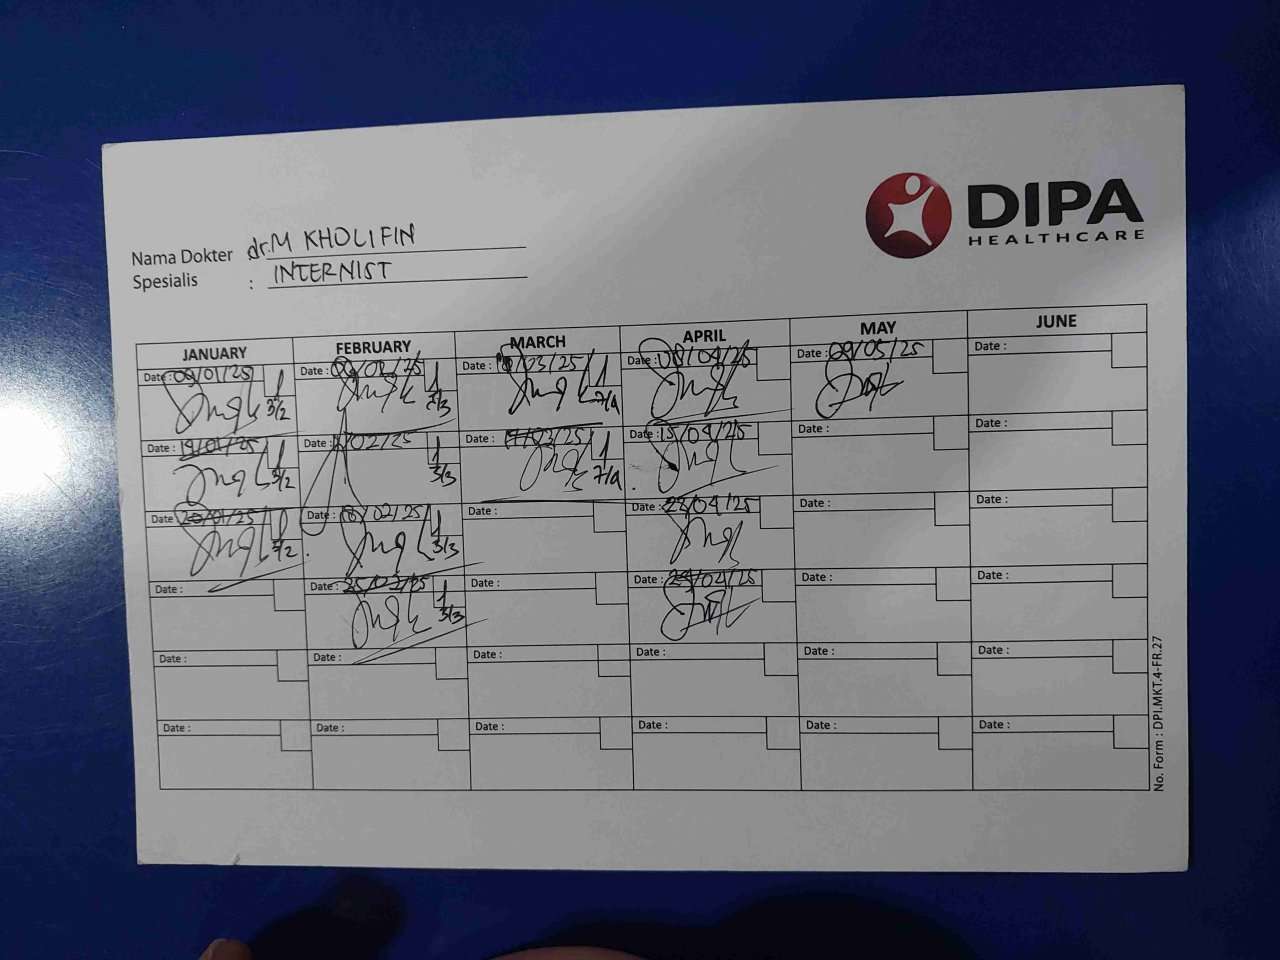 DIPA
HEALTHCARE
Nama Dokter dr. M KHOLIFIN
Spesialis : INTERNIST
JANUARY FEBRUARY MARCH APRIL MAY JUNE
Date : 09/01/25 Date : /25 Date : /03/25 Date : 08/04/25 Date : 09/05/25 Date :
3/2 3/3 7/4
Date : /01/25 Date : /02/25 Date : /03/25 Date : 15/04/25 Date : Date :
3/2 3/3 7/4
Date : 20/01/25 Date : /02/25 Date : Date : 22/04/25 Date : Date :
3/2 3/3
Date : Date : 25/02/25 Date : Date : 29/04/25 Date : Date :
3/3
Date : Date : Date : Date : Date : Date :
Date : Date : Date : Date : Date : Date :
No. Form : DPI.MKT.4-FR.27